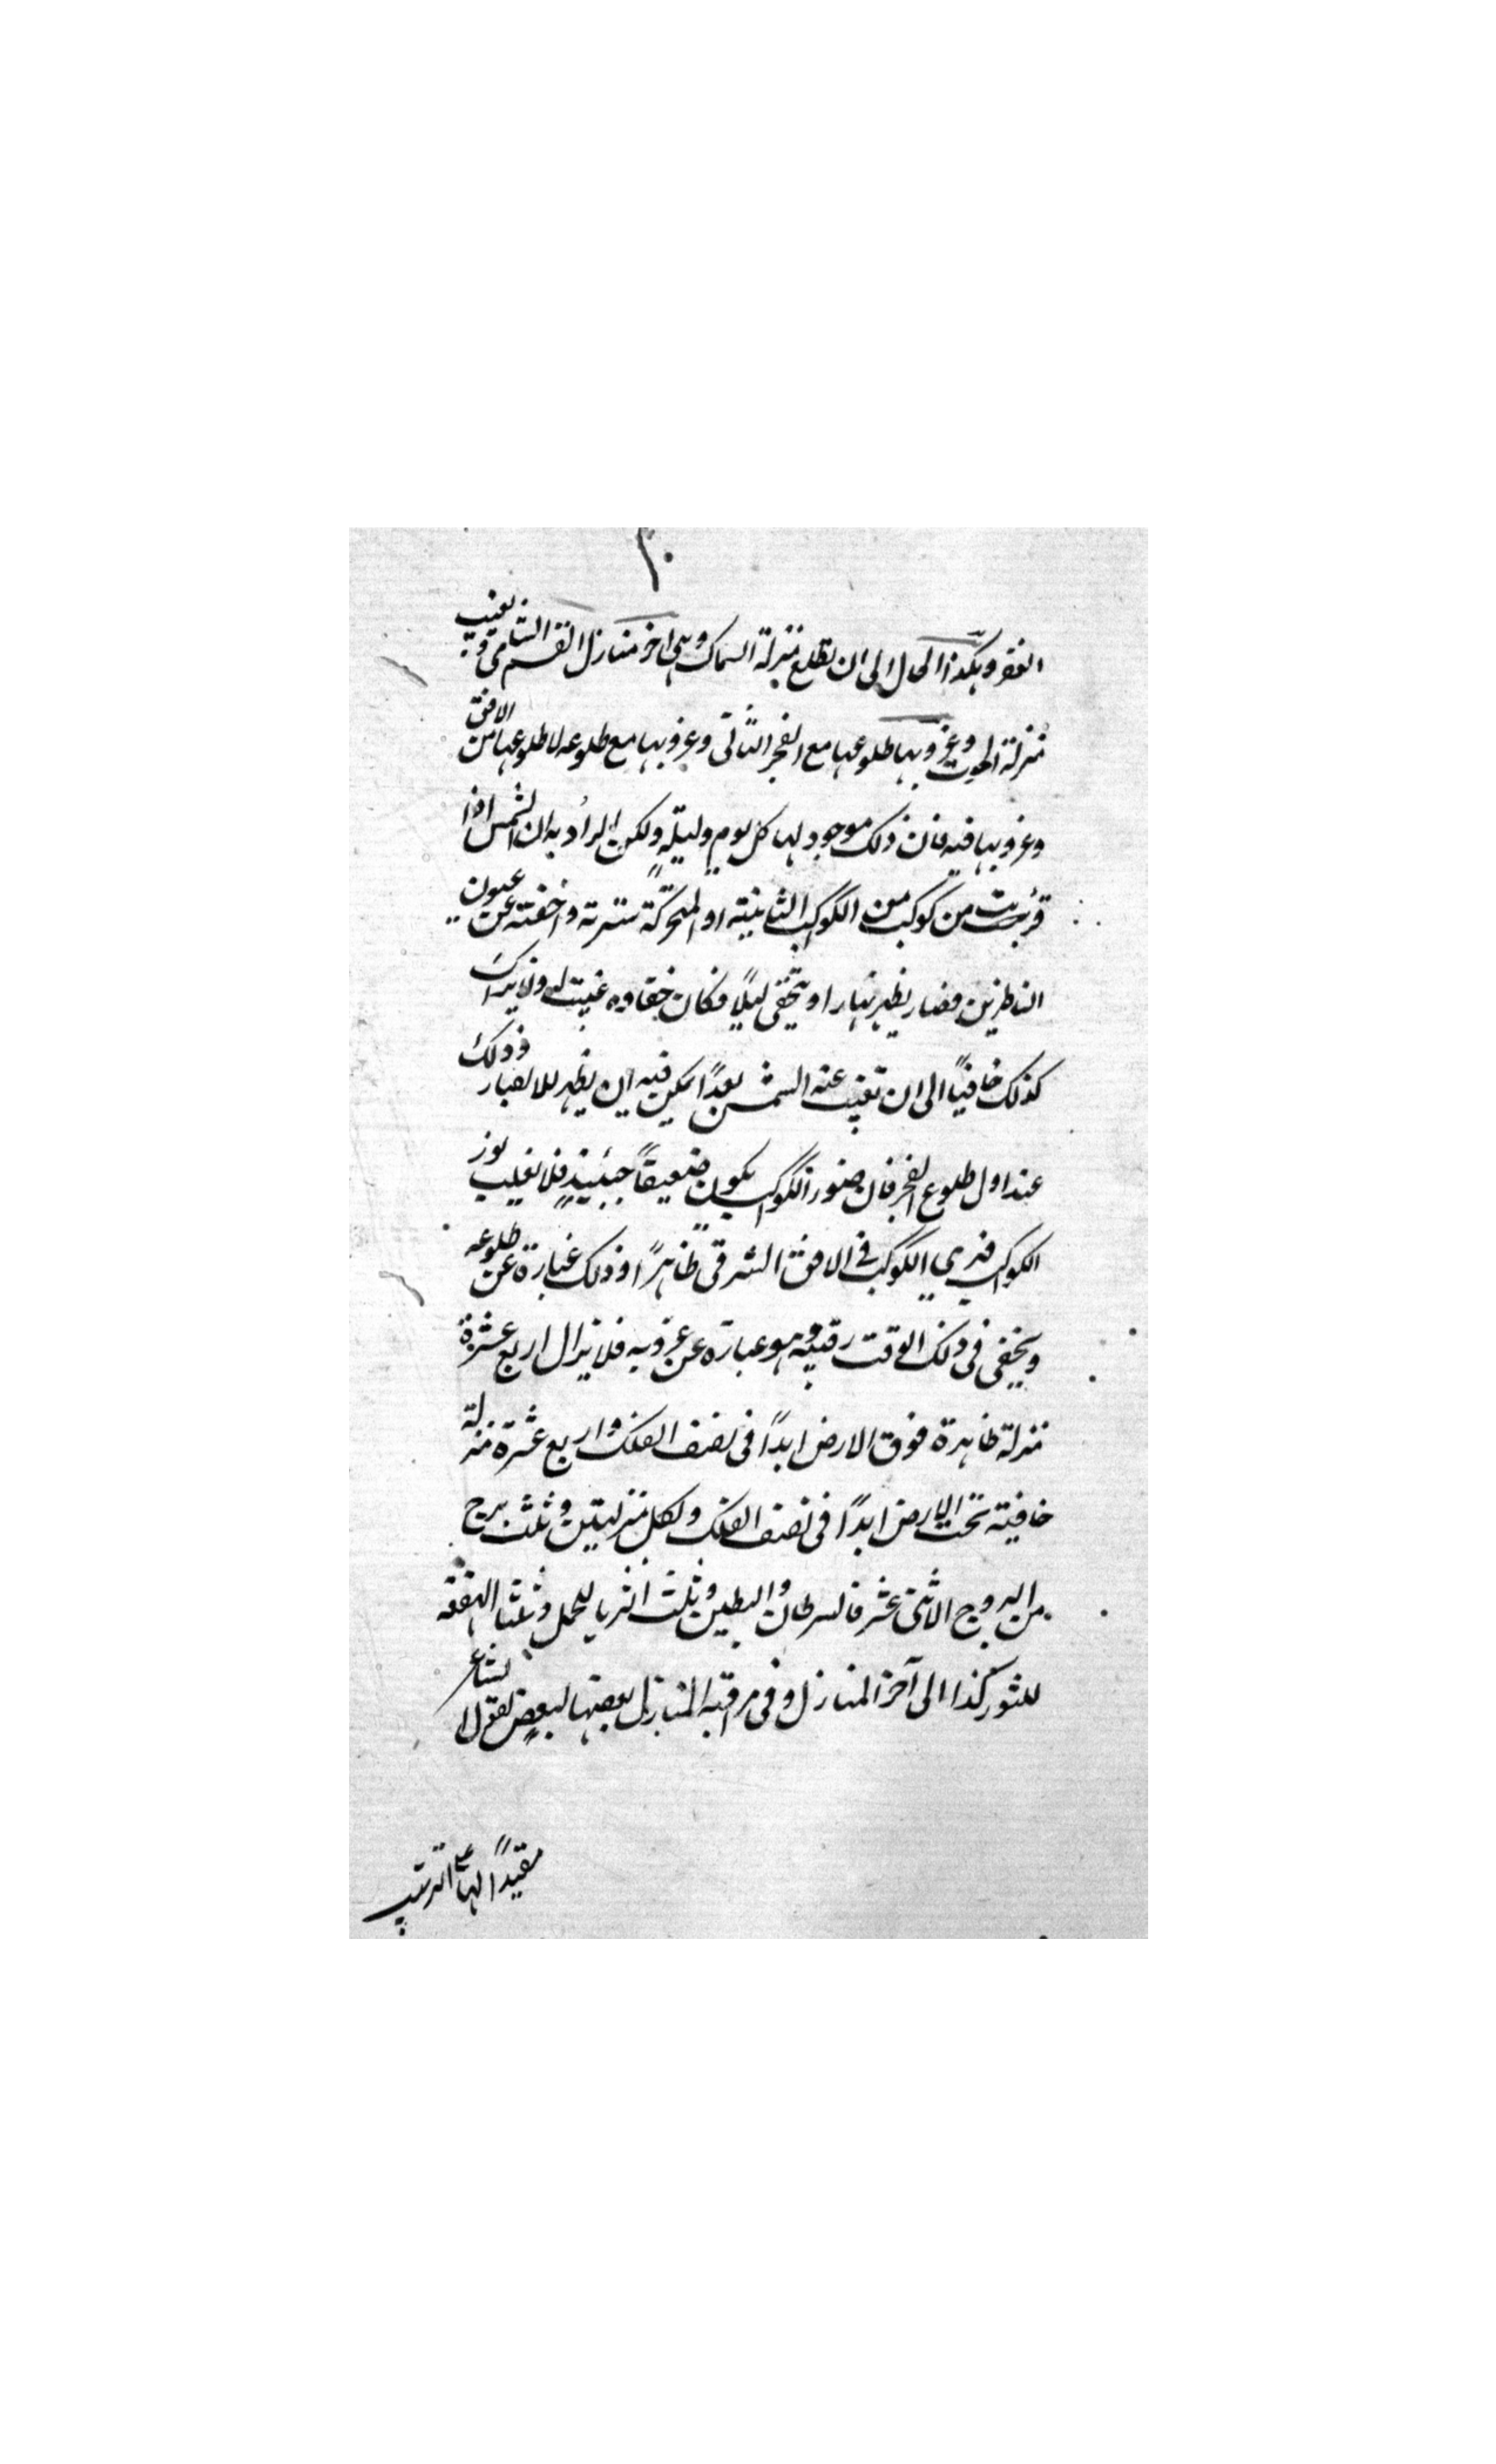 ٢٠
الغفر وهكذا الحال الى ان تطلع منزلة السماك وهى اخر منازل القسم الشامى وتغيب
منزلة الحوت وغروبها طلوعها مع الفجر الثانى وغروبها مع طلوعه لا طلوعها من الافق
وغروبها فيه فان ذلك موجود لها كل يوم وليلة ولكن المراد به ان الشمس اذا
قربت من كوكب من الكواكب الثابتة او المتحركة سترته واخفته عن عيون
الناظرين فصار يظهر نهارا ويختفى ليلًا فكان خفاوه غيبة له ولا يزال
كذلك خافيًا الى ان تغيب عنه الشمس بعدًا يمكن فيه ان يظهر للابصار وذلك
عند اول طلوع الفجر فان ضور الكوكب يكون ضعيفًا حينئذٍ فلا يغلب نور
الكوكب فيرى الكوكب فى الافق الشرقى ظاهرًا وذلك عبارة عن طلوعه
ويخفى فى ذلك الوقت رقيبه وهو عبارة عن غروبه فلا يزال اربع عشرة
منزلة ظاهرة فوق الارض ابدًا فى نصف الفلك واربع عشرة منزلة
خافية تحت الارض ابدًا فى نصف الفلك ولكل منزلتين وثلث برج
من البروج الاثنى عشر فالسرطان والبطين وثلث الثريا للحمل وثلثا الهقعة
للثور كذا الى آخر المنازل وفى مراقبة المنازل بعضها لبعض يقول الشاعر
مقيدًا لها على الترتيب